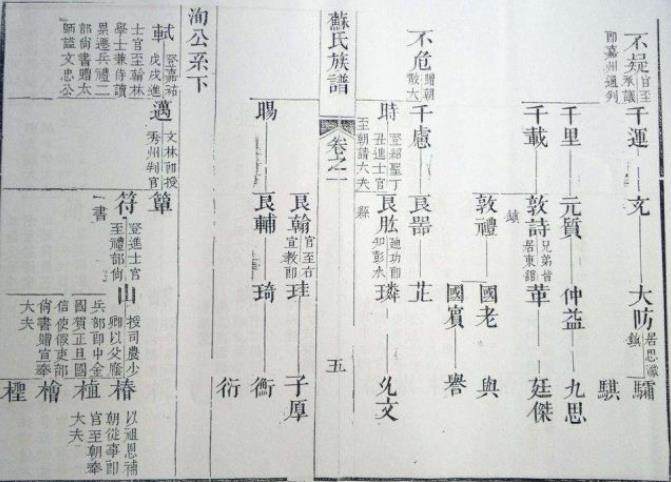 不疑 官至承議郎嘉州通判
千運 文 大防 居思濛鎮
騏
千里 元質 仲益 九思
千載 敦詩 兄弟皆居東館鎮 革 廷傑
敦禮 國老 與
國賓 譽
不危 贈朝散大
千慮 良器 芷
時 登紹聖丁丑進士官至朝請大夫 良肱 迪功郎知彭水縣 璘 允文
蘇氏族譜 卷之一 五
良翰 官至右宣教郎 珪 子厚
暘 良輔 琦 衡
衍
洵公系下
軾 登嘉祐戊戌進士官至翰林學士兼侍讀累遷兵禮二部尚書贈太師謚文忠公
邁 文林郎授秀州判官 簞
符 登進士官至禮部尚書 山 授司農少卿以父廕兵部郎中金國賀正旦國信使假吏部尚書贈宣奉大夫 椿 以祖恩補朝從事郎官至朝奉大夫
植
檜
檉